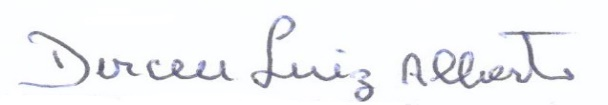 Dirceu Luiz Alberto